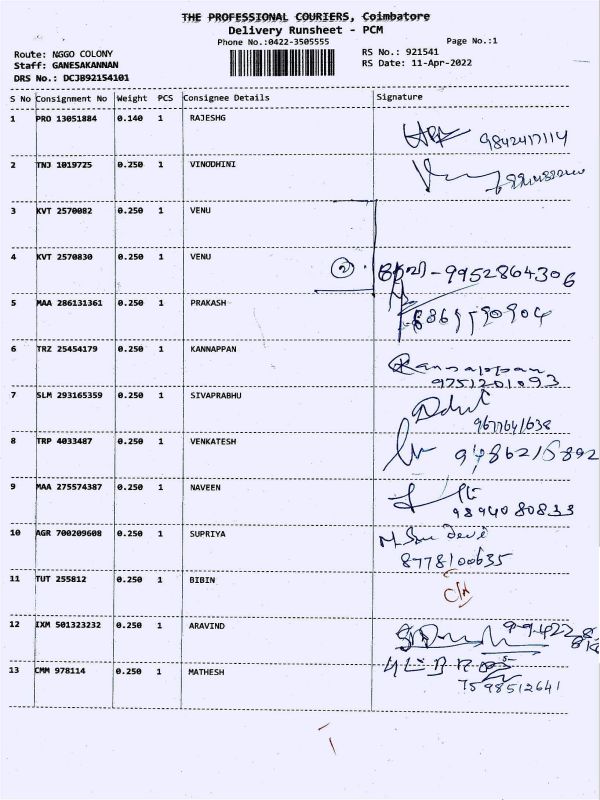 THE PROFESSIONAL COURIERS, Coimbatore
Delivery Runsheet - PCM
Phone No.:0422-3505555
Page No.:1
Route: NGGO COLONY
RS No.: 921541
Staff: GANESAKANNAN
RS Date: 11-Apr-2022
DRS No.: DCJB92154101
S No Consignment No Weight PCS Consignee Details Signature
1 PRO 13051884 0.140 1 RAJESHG
9842417114
2 TNJ 1019725 0.250 1 VINODHINI
3 KVT 2570082 0.250 1 VENU
4 KVT 2570830 0.250 1 VENU
2 - 9952864306
5 MAA 286131361 0.250 1 PRAKASH
6 TRZ 25454179 0.250 1 KANNAPPAN
Kannappan
9751201093
7 SLM 293165359 0.250 1 SIVAPRABHU
9677641638
8 TRP 4033487 0.250 1 VENKATESH
9486215892
9 MAA 275574387 0.250 1 NAVEEN
9894080833
10 AGR 700209608 0.250 1 SUPRIYA
8778100635
11 TUT 255812 0.250 1 BIBIN
12 IXM 501323232 0.250 1 ARAVIND
13 CMM 978114 0.250 1 MATHESH
7598512641